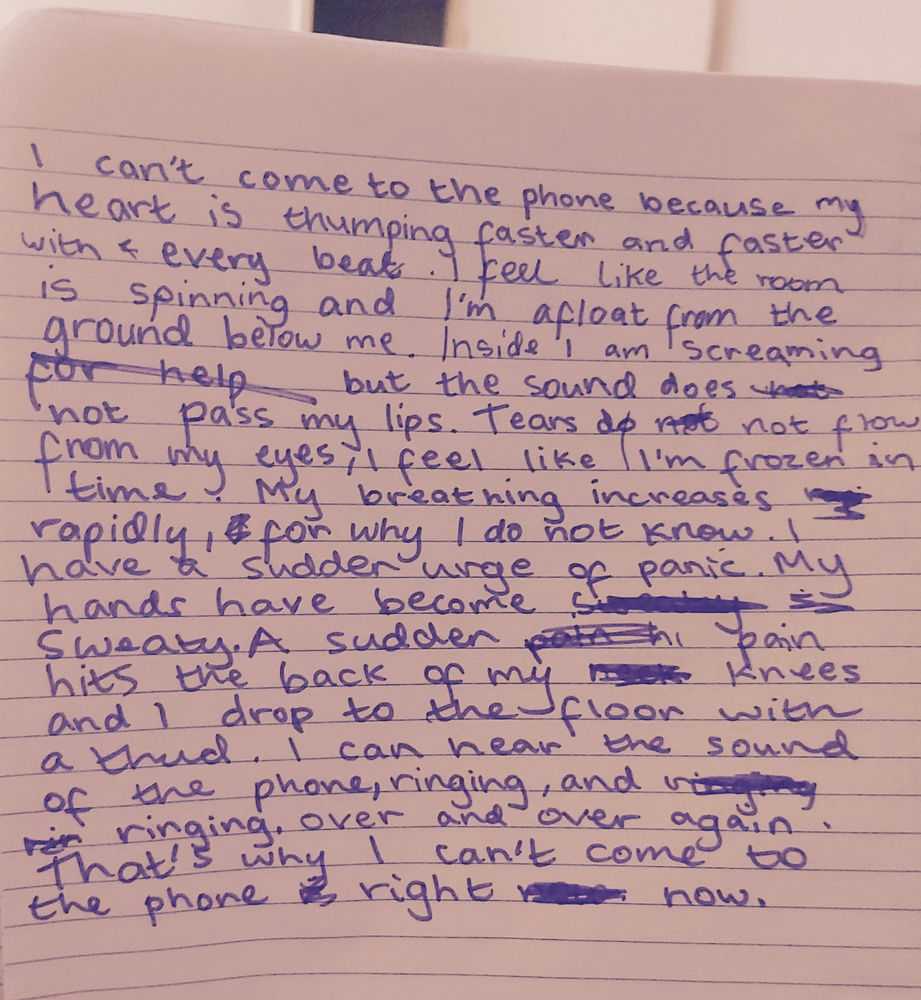 I can't come to the phone because my
heart is thumping faster and faster
with & every beat. I feel like the room
is spinning and I'm afloat from the
ground below me. Inside I am screaming
for help but the sound does not
not pass my lips. Tears do not not flow
from my eyes, I feel like I'm frozen in
time. My breathing increases
rapidly, for why I do not know. I
have a sudden urge of panic. My
hands have become
sweaty. A sudden pain hi pain
hits the back of my knees
and I drop to the floor with
a thud. I can hear the sound
of the phone, ringing, and
rin ringing. over and over again.
That's why I can't come to
the phone right now.